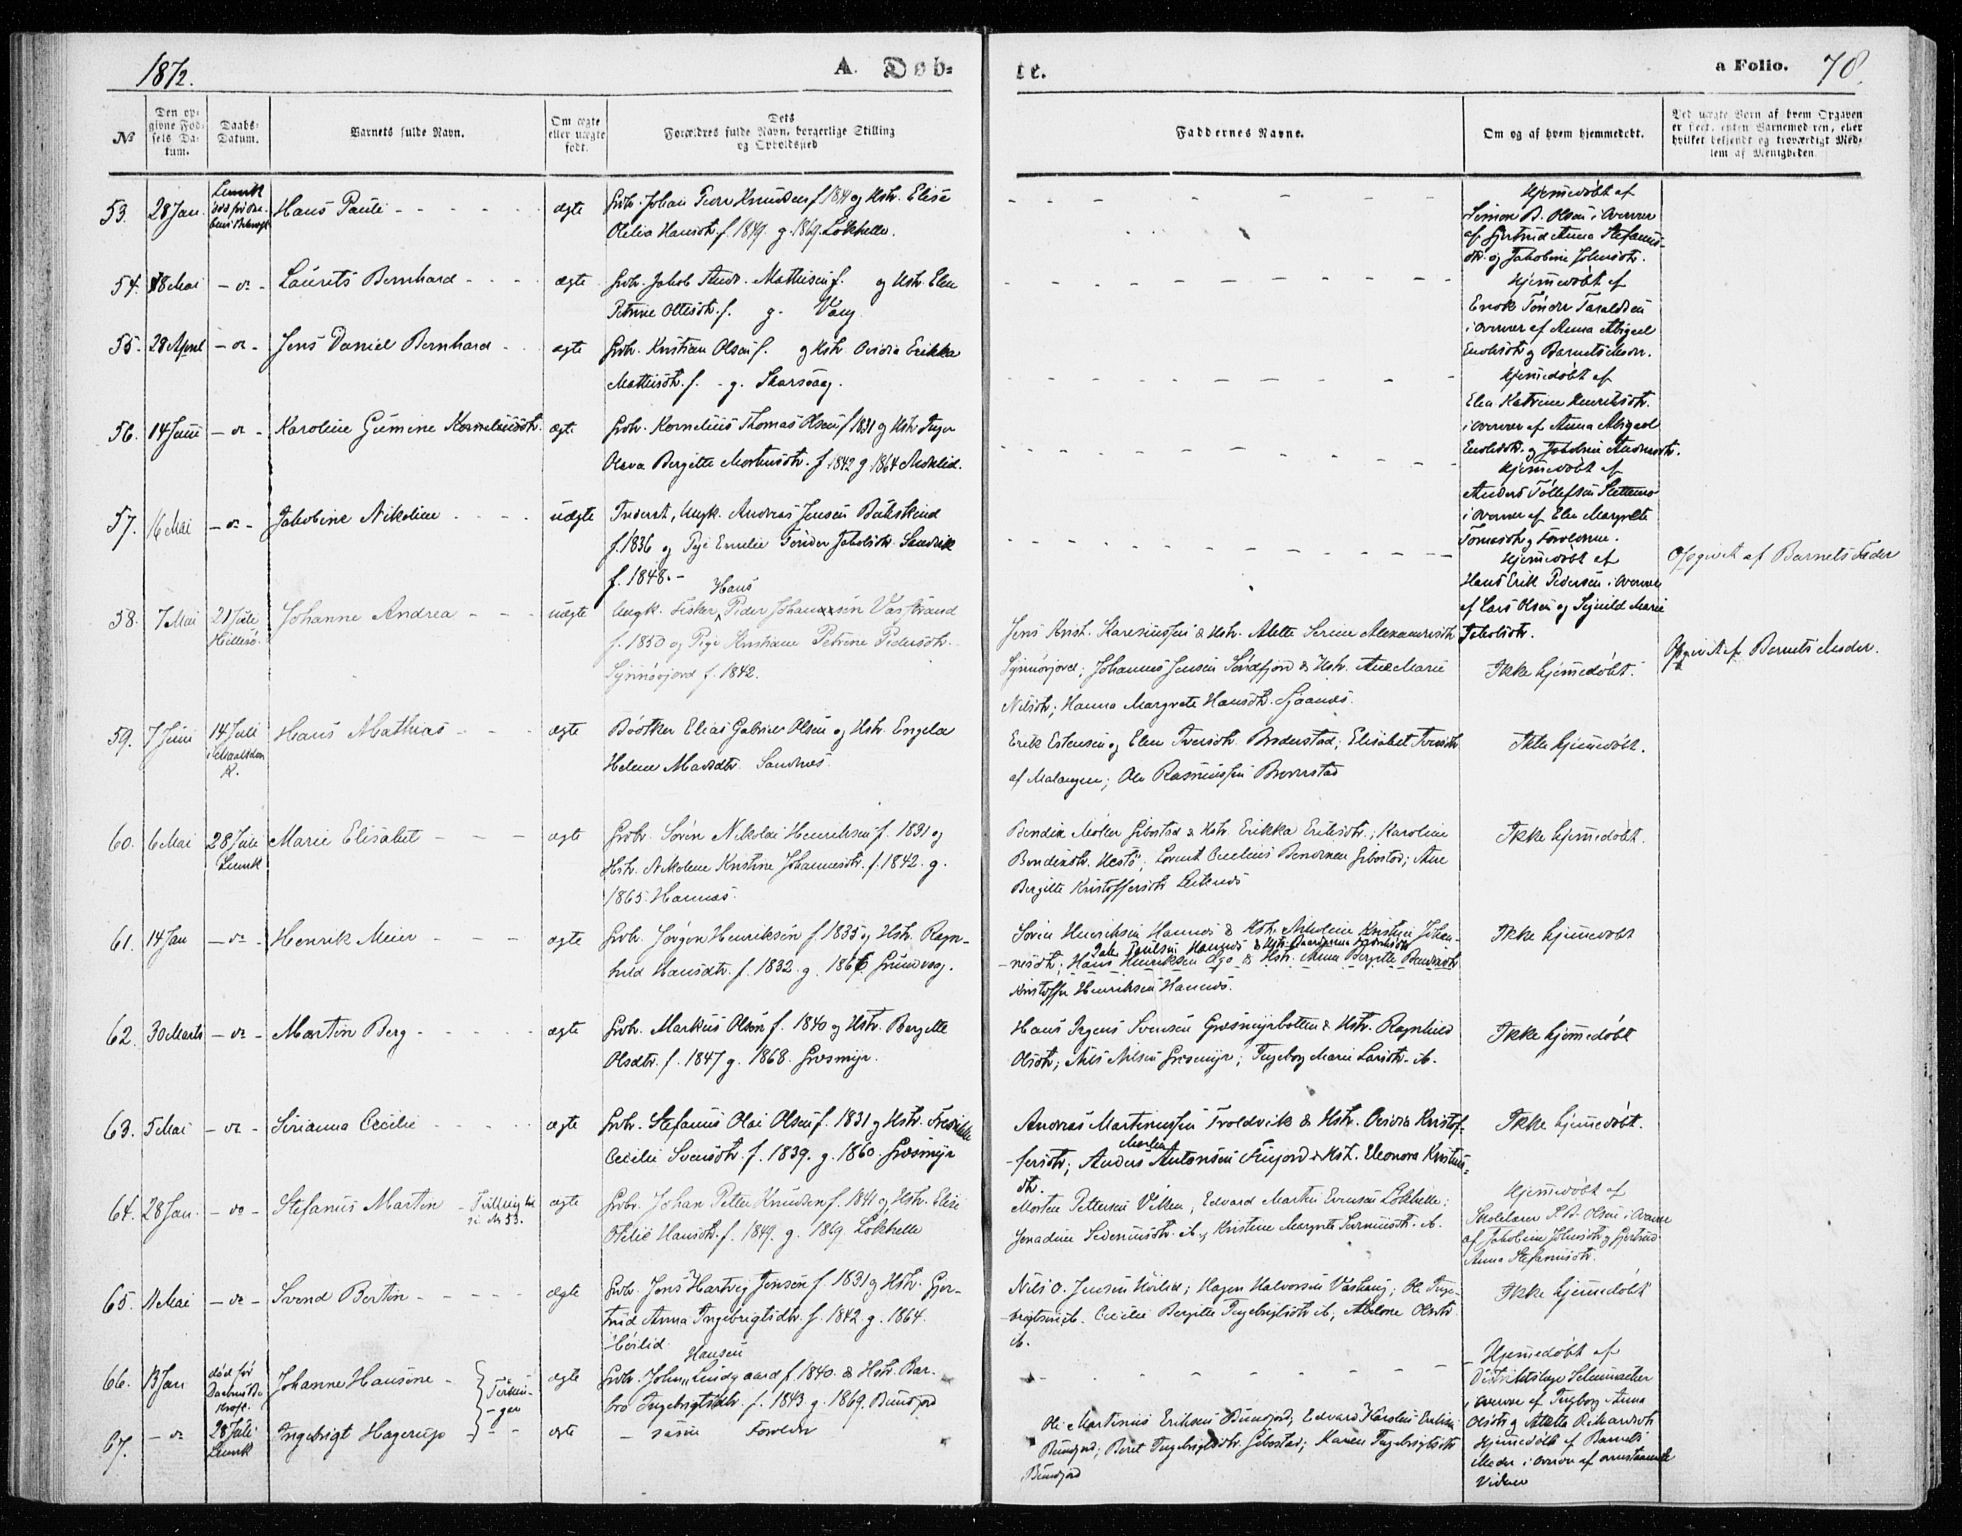 1872.
A. Døb-
te.
a Folio. 78.
№
Den op-
givne Fød-
sels Da-
tum.
Daabs-
Datum.
Barnets fulde Navn.
Om ægte
eller uægte
født.
Dets
Forældres fulde Navn, borgerlige Stilling
og Opholdsted
Faddernes Navne.
Om og af hvem hjemmedøbt.
Ved uægte Børn af hvem Opgaven
er skeet, enten Barnemoderen, eller
hvilket bekjendt og troværdigt Med-
lem af Menigheden.
53. 28 Jan. Hans Paule - - - - ægte Grbr. Johan Peter Knudsen f. 1841 og Hstr. Elise
Otelia Hansdtr. f. 1849. g. 1869. Lökhelle.
Hjemmedøbt af
Simon B. Olsen i Overvær
af Gjertrud Anna Stefanus-
dtr. og Jakobine Johnsdtr.
54. 18 Mai - do - Laurits Bernhard - - - - ægte Grbr. Jakob Andr. Mathisen f. og Hstr. Elen
Petrine Ottesdtr. f. g. Vang
Hjemmedøbt af
Enok Tönder Taraldsen
i Overvær af Anna Abigael
Enoksdtr. og Barnets Moder.
55. 28 April - do - Jens Daniel Bernhard - ægte Grbr. Kristian Olsen f. og Hstr. Ovidia Erikka
Mathisdtr. f. - g. Skarsvaag.
Hjemmedøbt af
Elea Katrine Henriksdtr.
i Overvær af Anna Abigael
Enoksdtr. og Jakobine Andreasdtr.
56. 14 Juni - do - Karoline Gumine Korneliusdtr. ægte Grbr. Kornelius Thomas Olsen f. 1831 og Hstr. Inger
Olava Bergitte Mortensdtr. f. 1842 g. 1864 Moklid.
Hjemmedøbt af
Anders Tollefsen Slettemo
i Overvær af Elen Margrete
Tomasdtr. og Forældrene.
57. 16 Mai - do - Jakobine Nikoline - - - - uægte Inderst, Ungk. Andreas Jensen Bukskind
f. 1836 og Pige Emelie Tönder Jakobsdtr. Sandvik
f. 1848. -
Hjemmedøbt af
Hans Erik Pedersen i Overvær
af Lars Olsen og Signild Marie
Jakobsdtr.
Opgivet af Barnets Fader
58. 7 Mai 21 Juli
Hillesö. Johanne Andrea - - - uægte Ungk. Fisker, Hans Peder Johansen Vasstrand
f. 1850 og Pige Kristiane Petrine Pedersdtr.
f. 1842.
Jens Krist. Karesiussen & Hstr. Alette Serine Alexandersdtr.
Johannes Jensen Sördfjord & Hstr. Ane Marie
Nilsdtr.; Hanna Margrete Hansdtr.
Ikke hjemmedøbt.
Opgivet af Barnets Moder.
59. 7 Juni 14 Juli
K. Hans Mathias - - - ægte Bödker Elias Gabriel Olsen og Hstr. Engela
Helene Madsdtr. Sandnes
Erik Estensen og Elen Iversdtr. Broderstad; Elisabet Iversdtr.
af Malangen; Ole Rasmussen Broderstad
Ikke hjemmedøbt.
60. 6 Mai 28 Juli
Lenvik Marie Elisabet - - - ægte Grbr. Sören Nikolai Henriksen f. 1831 og
Hstr. Nikoline Kristine Johannesdtr. f. 1842. g.
1865. Hannes.
Bendix Möller Gibostad & Hstr. Erikka Eriksdtr.; Karoline
Bendixdtr. Hestö; Lorent Cecelius Bendixen Gibostad; Ane
Bergitte Kristoffersdtr. Leiknes
Ikke hjemmedøbt.
61. 14 Jan - do - Henrik Meier - - - ægte Grbr. Jörgen Henriksen f. 1835 og Hstr. Ragn-
hild Hansdtr. f. 1832. g. 1866. Grundvaag.
Sören Henriksen Hannes & Hstr. Nikoline Kristine Johan-
nesdtr.; Hans Henriksen & Hstr. Anna Bergitte
Kristoffer Henriksen Hannes.
Ikke hjemmedøbt
62. 30 Marts - do - Martin Berg - - - - - ægte Grbr. Markus Olsen f. 1840 og Hstr. Bergitte
Olsdtr. f. 1847 g. 1868. Græsmyr.
Hans Irgens Svensen Græsmyrbotten & Hstr. Ragnhild
Olsdtr.; Nils Nilsen Græsmyr; Ingeborg Marie Larsdtr. ib.
Ikke hjemmedøbt
63. 5 Mai - do - Sirianna Cecilie - - - - - ægte Grbr. Stefanus Olai Olsen f. 1831 og Hstr. Fredrikke
Cecilie Svensdtr. f. 1839. g. 1860. Græsmyr
Andreas Martinussen Troldvik & Hstr. Ovidia Kristof-
fersdtr.; Anders Martin Antonsen Finjord & Hstr. Eleonora Kristens-
dtr.
Ikke hjemmedøbt.
64. 28 Jan. - do - Stefanus Martin - Tvilling til
se № 53. ægte Grbr. Johan Petter Knudsen f. 1841 og Hstr. Elise
Otelie Hansdtr. f. 1849. g. 1869. Lökhelle
Morten Pettersen Viken; Edvard Martin Evensen Lökhelle;
Kristine Margrete ib.
Hjemmedøbt af
Skolelærer S. B. Olsen i Overvær
af Jakobine Johnsdtr. og Gjertrud
Anna Stefanusdtr.
65. 11 Mai - do - Svend Bertin - - - - - ægte Grbr. Jens Hartvig Jensen f. 1831 og Hstr. Gjer-
trud Anna Ingebrigtsdtr. f. 1842 g. 1864.
Nils O. Jensen; Hagen Halvorsen; Ole Inge-
brigtsen ib. Cecilie Bergitte Ingebrigtsdtr. ib.; Olsdtr.
ib.
Ikke hjemmedøbt
66. 13 Jan död för
Johanne Hansine - Tvillin-
ger ægte Grbr. John Hansen Lindgaard f. 1840. & Hstr. Bar-
bro Ingebrigtsdtr. f. 1843 g. 1869. Bundjord
Hjemmedøbt af
Distriktslæge Schumacher
i Overvær af Ingborg Anna
Olsdtr. og Rikardsdtr.
67. - do 28 Juli
Lenvik Ingebrigt Hagerup - - ægte - samme Forældre
Ole Martinus Eriksen Bundjord; Edvard Karolius Eriksen
Bundjord; Beret Ingebrigtsdtr. Gibostad; Karen Ingebrigtsdtr.
Bundjord
Hjemmedøbt af Barnets
Moder i Overvær af ovenstaaende
Vidner